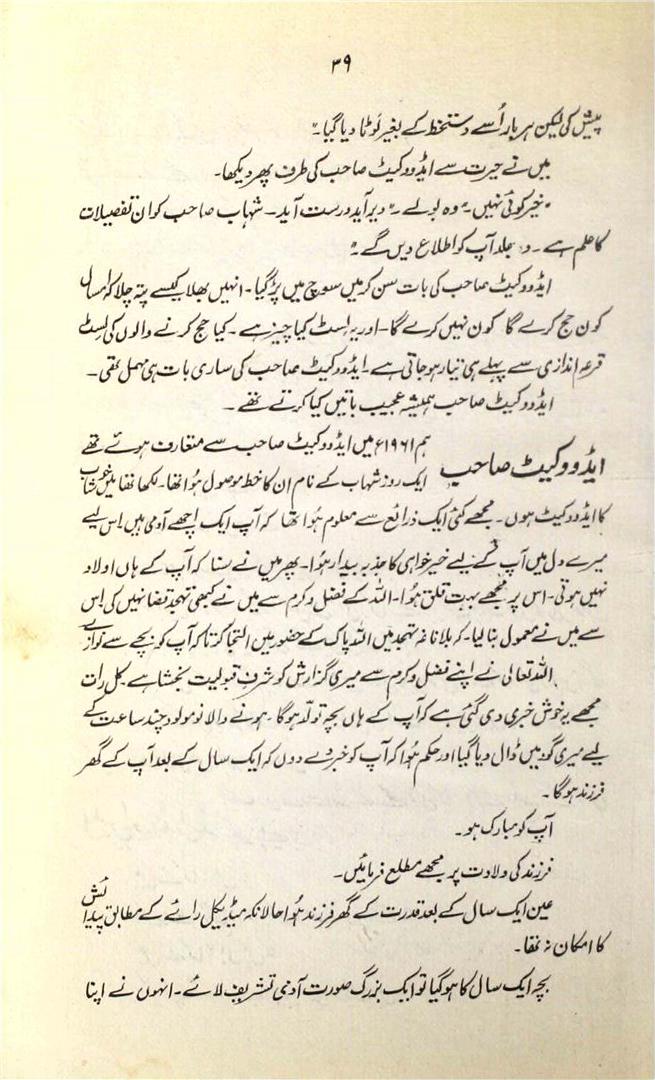 ۳۹
پیش کی لیکن ہر بار اُسے دستخط کے بغیر لوٹا دیا گیا۔"
میں نے حیرت سے ایڈووکیٹ صاحب کی طرف پھر دیکھا۔
"خیر کوئی نہیں۔" وہ بولے ۔"دیر آید درست آید۔ شہاب صاحب کو ان تفصیلات
کا علم ہے ۔ وہ جلد آپ کو اطلاع دیں گے۔"
ایڈووکیٹ صاحب کی بات سن کر میں سوچ میں پڑ گیا۔ انہیں بھلا کیسے پتہ چلا کہ امسال
کون حج کرے گا کون نہیں کرے گا۔ اور یہ لسٹ کیا چیز ہے ۔ کیا حج کرنے والوں کی لسٹ
قرعہ اندازی سے پہلے ہی تیار ہو جاتی ہے۔ ایڈووکیٹ صاحب کی ساری بات ہی مہمل تھی۔
ایڈووکیٹ صاحب ہمیشہ عجیب باتیں کیا کرتے تھے ۔
ایڈووکیٹ صاحب
ہم ۱۹۶۱ء میں ایڈووکیٹ صاحب سے متعارف ہوئے تھے
ایک روز شہاب کے نام ان کا خط موصول ہُوا تھا۔ لکھا تھا میں خوشاب
کا ایڈووکیٹ ہوں۔ مجھے کئی ایک ذرائع سے معلوم ہُوا تھا کہ آپ ایک اچھے آدمی ہیں اس لیے
میرے دل میں آپ کے لیے خیر خواہی کا جذبہ بیدار ہُوا۔ پھر میں نے سنا کہ آپ کے ہاں اولاد
نہیں ہوتی۔ اس پر مجھے بہت قلق ہُوا۔ اللہ کے فضل و کرم سے میں نے کبھی تہجد قضا نہیں کی اس
سے میں نے معمول بنا لیا۔ کہ بلا ناغہ تہجد میں اللہ پاک کے حضور میں التجا کرتا کہ آپ کو بچے سے نوازے
اللہ تعالیٰ نے اپنے فضل و کرم سے میری گزارش کو شرفِ قبولیت بخشا ہے ۔ کل رات
مجھے یہ خوش خبری دی گئی ہے کہ آپ کے ہاں بچہ تولد ہوگا۔ ہونے والا نومولود چند ساعت کے
لیے میری گود میں ڈال دیا گیا اور حکم ہُوا کہ آپ کو خبر دے دوں کہ ایک سال کے بعد آپ کے گھر
فرزند ہوگا۔
آپ کو مبارک ہو۔
فرزند کی ولادت پر مجھے مطلع فرمائیں۔
عین ایک سال کے بعد قدرت کے گھر فرزند ہُوا حالانکہ میڈیکل رائے کے مطابق پیدائش
کا امکان نہ تھا۔
بچہ ایک سال کا ہوگیا تو ایک بزرگ صورت آدمی تشریف لائے۔ انہوں نے اپنا